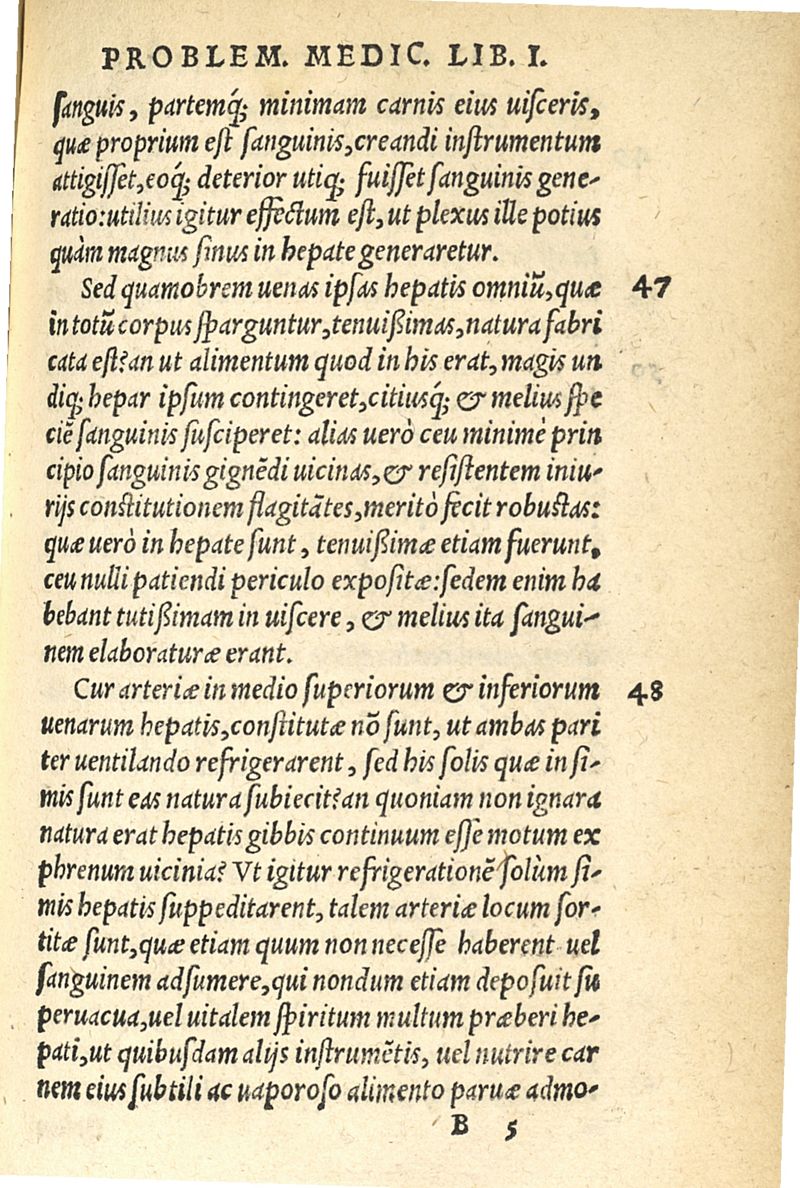 PROBLEM. MEDIC. LIB. I.
ſanguis, partemq́; minimam carnis eius uiſceris,
quæ proprium eſt ſanguinis, creandi inſtrumentum
attigiſſet, eoq́; deterior utiq; fuiſſet ſanguinis gene-
ratio: utilius igitur effectum eſt, ut plexus ille potius
quàm magnus ſinus in hepate generaretur.
Sed quamobrem uenas ipſas hepatis omniũ, quæ 47
in totũ corpus ſparguntur, tenuißimas, natura fabri
cata eſt? an ut alimentum quod in his erat, magis un
diq; hepar ipſum contingeret, citiusq́; & melius ſpe
ciẽ ſanguinis ſuſciperet: alias uerò ceu minimè prin
cipio ſanguinis gignẽdi uicinas, & reſiſtentem iniu-
rijs conſtitutionem flagitãtes, meritò fecit robuſtas:
quæ uerò in hepate ſunt, tenuißimæ etiam fuerunt,
ceu nulli patiendi periculo expoſitæ: ſedem enim ha
bebant tutißimam in uiſcere, & melius ita ſangui-
nem elaboraturæ erant.
Cur arteriæ in medio ſuperiorum & inferiorum 48
uenarum hepatis, conſtitutæ nõ ſunt, ut ambas pari
ter uentilando refrigerarent, ſed his ſolis quæ in ſi-
mis ſunt eas natura ſubiecit? an quoniam non ignara
natura erat hepatis gibbis continuum eſſe motum ex
phrenum uicinia? Vt igitur refrigerationẽ ſolùm ſi-
mis hepatis ſuppeditarent, talem arteriæ locum ſor-
titæ ſunt, quæ etiam quum non neceſſe haberent uel
ſanguinem adſumere, qui nondum etiam depoſuit ſu
peruacua, uel uitalem ſpiritum multum præberi he-
pati, ut quibuſdam alijs inſtrumẽtis, uel nutrire car
nem eius ſubtili ac uaporoſo alimento paruæ admo-
B 5